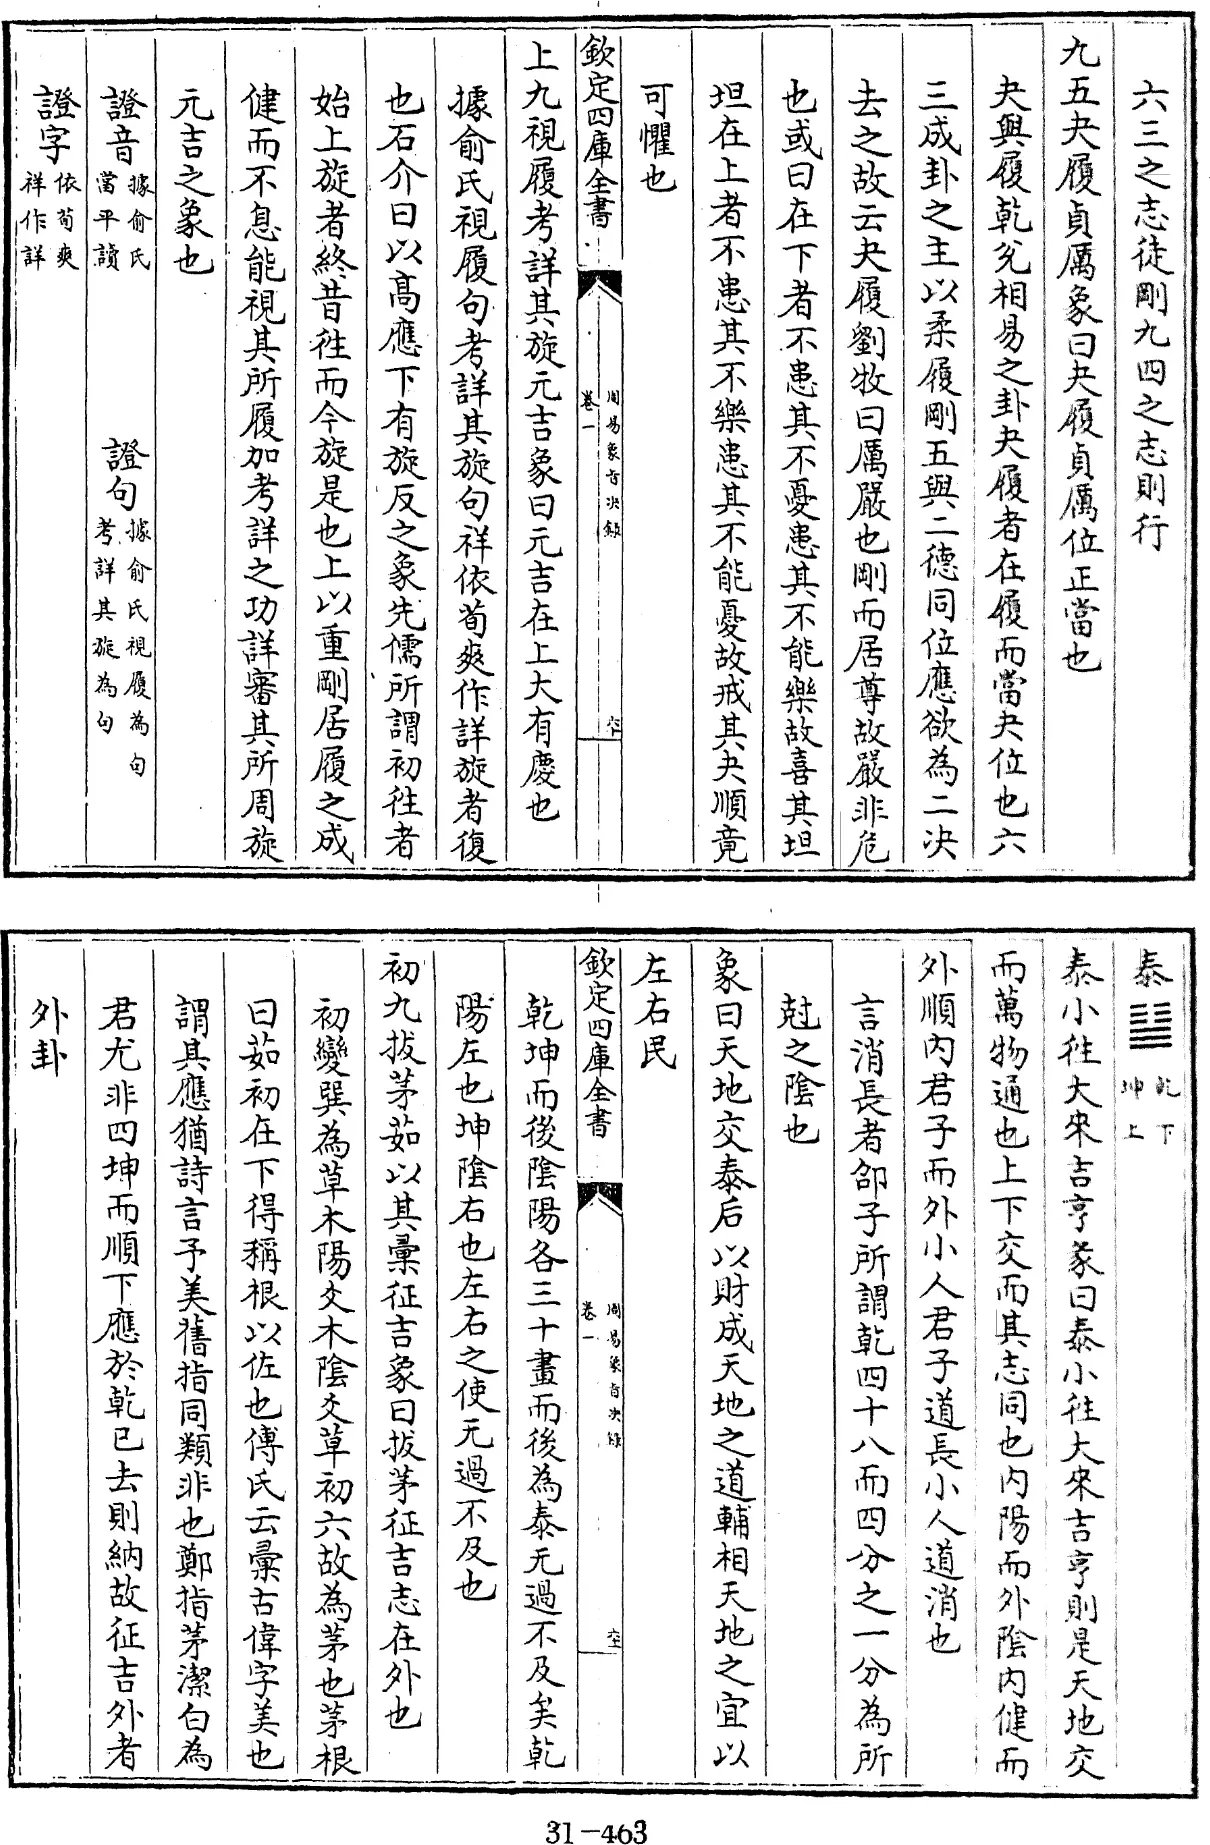 六三之志徒剛九四之志則行
九五夬履貞厲象曰夬履貞厲位正當也
夬與履乾兊相易之卦夬履者在履而當夬位也六
三成卦之主以柔履剛五與二德同位應欲為二決
去之故云夬履劉牧曰厲嚴也剛而居尊故嚴非危
也或曰在下者不患其不憂患其不能樂故喜其坦
坦在上者不患其不樂患其不能憂故戒其夬順竟
可懼也
欽定四庫全書
周易象旨決録
卷一
六十
上九視履考詳其旋元吉象曰元吉在上大有慶也
據俞氏視履句考詳其旋句祥依荀爽作詳旋者復
也石介曰以髙應下有旋反之象先儒所謂初徃者
始上旋者終昔徃而今旋是也上以重剛居履之成
健而不息能視其所履加考詳之功詳審其所周旋
元吉之象也
證音據俞氏當平讀
證句據俞氏視履為句考詳其旋為句
證字依荀爽祥作詳
泰
乾下
坤上
泰小徃大來吉亨彖曰泰小徃大來吉亨則是天地交
而萬物通也上下交而其志同也内陽而外陰内健而
外順内君子而外小人君子道長小人道消也
言消長者邵子所謂乾四十八而四分之一分為所
尅之陰也
象曰天地交泰后以財成天地之道輔相天地之宜以
左右民
欽定四庫全書
周易象旨決録
卷一
乾坤而後陰陽各三十畫而後為泰无過不及矣乾
陽左也坤陰右也左右之使无過不及也
初九拔茅茹以其彚征吉象曰拔茅征吉志在外也
初變巽為草木陽爻木陰爻草初六故為茅也茅根
曰茹初在下得稱根以佐也傅氏云彚古偉字美也
謂其應猶詩言予美舊指同類非也鄭指茅潔白為
君尤非四坤而順下應於乾已去則納故征吉外者
外卦
31-463